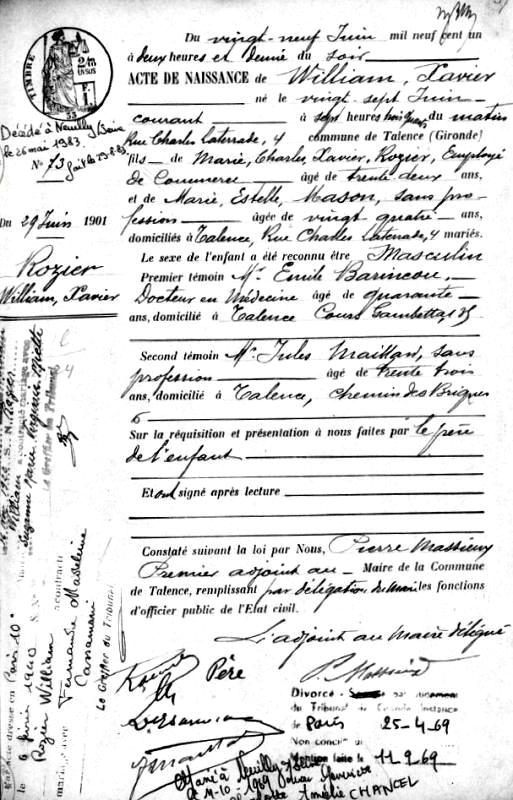 Du vingt-neuf Juin mil neuf cent un
à deux heures et demie du soir
ACTE DE NAISSANCE de William, Xavier
né le vingt-sept Juin
courant à sept heures trois quarts du matin
Rue Charles Laterrade, 4 commune de Talence (Gironde)
fils de Marie, Charles, Xavier, Rozier, Employé
de Commerce âgé de trente deux ans,
et de Marie, Estelle, Mason, sans pro-
fession âgée de vingt quatre ans,
domiciliés à Talence, Rue Charles Laterrade, 4 mariés.
Le sexe de l'enfant a été reconnu être Masculin
Premier témoin Mr. Emile Barincou,
Docteur en Médecine âgé de quarante
ans, domicilié à Talence Cours Gambetta
Second témoin Mr. Jules Maillan, sans
profession âgé de trente trois
ans, domicilié à Talence, chemin des Briques
6
Sur la réquisition et présentation à nous faites par le père
de l'enfant
Et ont signé après lecture
Constaté suivant la loi par Nous, Pierre Massieux
Premier adjoint au Maire de la Commune
de Talence, remplissant par délégation du Maire les fonctions
d'officier public de l'Etat civil.
L'adjoint au Maire délégué
Père
TIMBRE
Décédé à Neuilly S/Seine
le 26 mai 1983
No 73
Du 29 Juin 1901
Rozier
William, Xavier
6 février 1940
Paris 10e
Rozier William
a contracté
mariage avec
Fernande Madeleine
Le Greffier du Tribunal
William
a contracté mariage avec
Suzanne Marie
Le Greffier du Tribunal
Divorcé par jugement
du Tribunal de Grande Instance
de Paris 25-4-69
Mention faite le 11-9-69
Marié à Neuilly S/Seine
CHANCEL